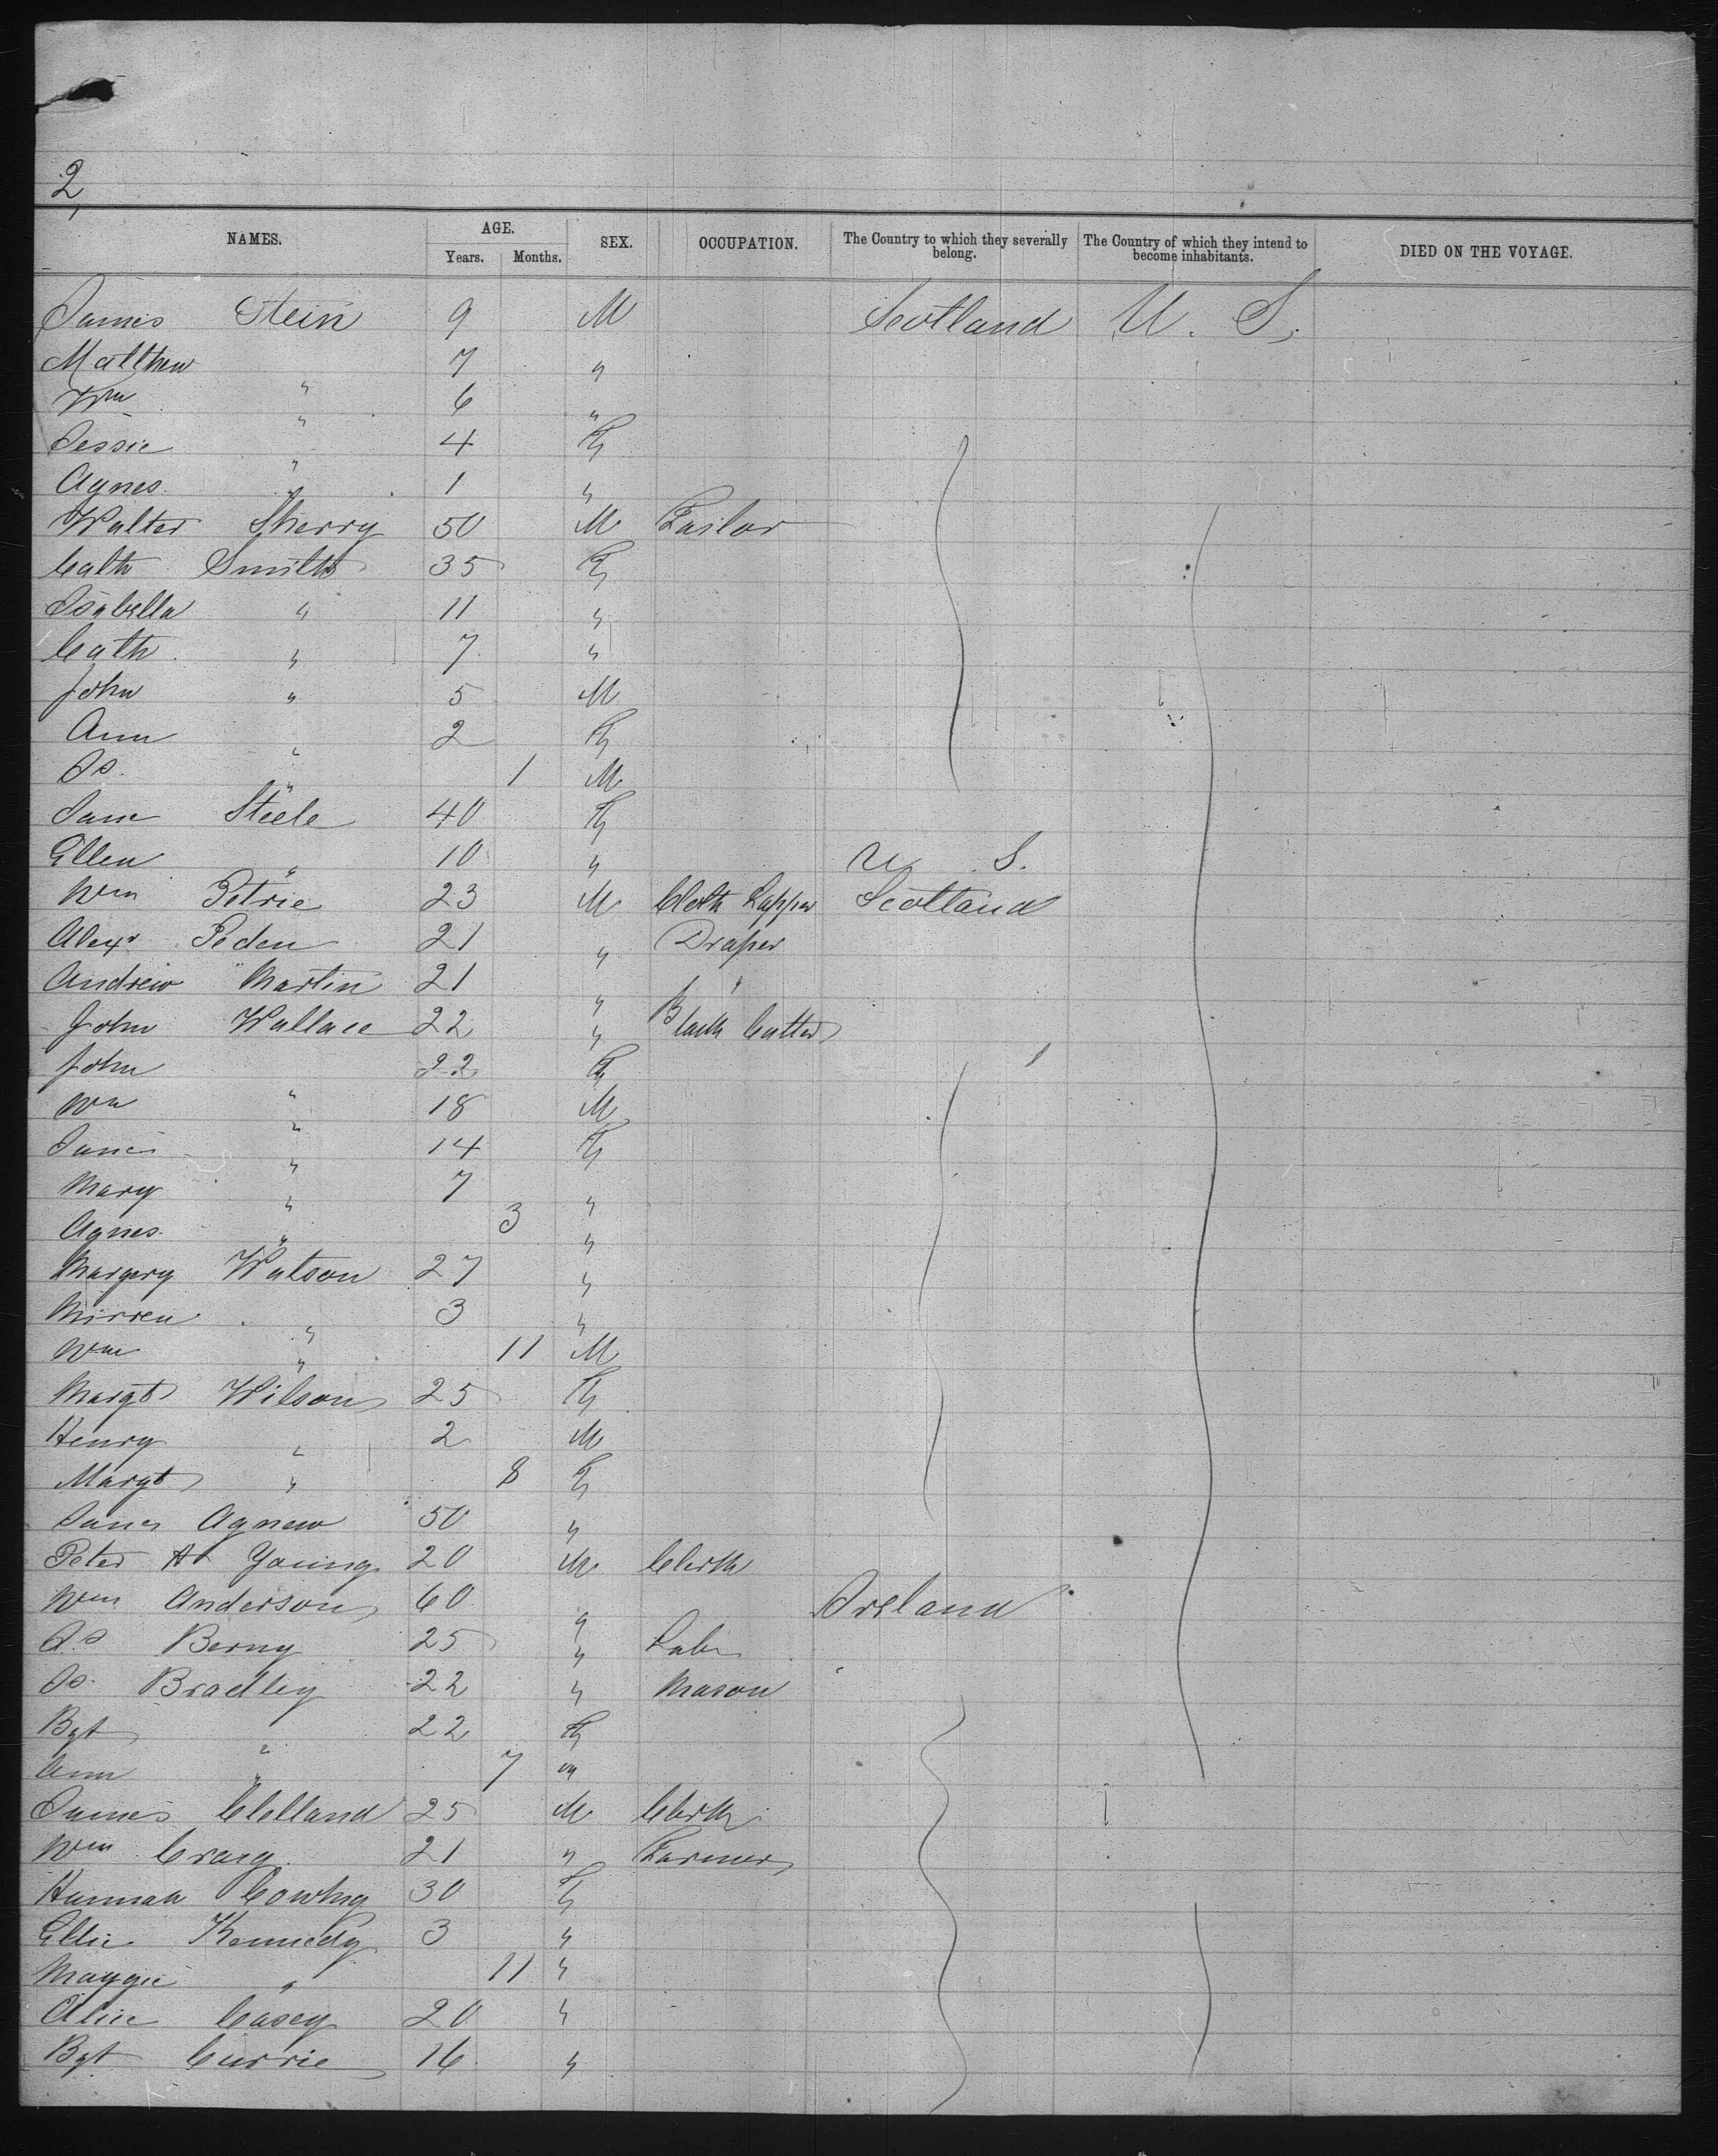 2
NAMES. AGE. SEX. OCCUPATION. The Country to which they severally belong. The Country of which they intend to become inhabitants. DIED ON THE VOYAGE.
Years. Months.
James Stein 9 M Scotland U. S.
Matthew " 7 "
Wm " 6 "
Jessie " 4 F
Agnes " 1 "
Walter Sherry 50 M Tailor
Cath Smith 35 F
Isabella " 11 "
Cath " 7 "
John " 5 M
Ann " 2 F
Js. " 1 M
Jane Steele 40 F
Ellen " 10 " U S.
Wm Petrie 23 M Cloth Lapper Scotland
Alexr Peden 21 " Draper
Andrew Martin 21 " "
John Wallace 22 " Block Cutter
John " 22 F
Wm " 18 M
Janes " 14 F
Mary " 7 "
Agnes " 3 "
Margery Watson 27 "
Mirren " 3 "
Wm " 11 M
Margt Wilson 25 F
Henry " 2 M
Margt " 8 F
Janes Agnew 50 "
Peter A Young 20 M Clerk
Wm Anderson 60 " Ireland
Js Berny 25 " Labr
Js. Bradley 22 " Mason
Bgt " 22 F
Ann " 7 "
James Clelland 25 M Clerk
Wm Craig 21 " Farmer
Hannah 30 F
Ellie Kennedy 3 "
Maggie " 11 "
Alice Casey 20 "
Bgt Currie 16 "